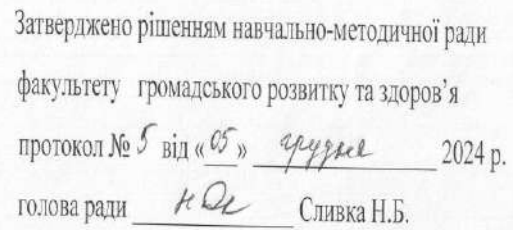 Затверджено рішенням навчально-методичної ради
факультету громадського розвитку та здоров'я
протокол № 5 від «05» грудня 2024 р.
голова ради Сливка Н.Б.